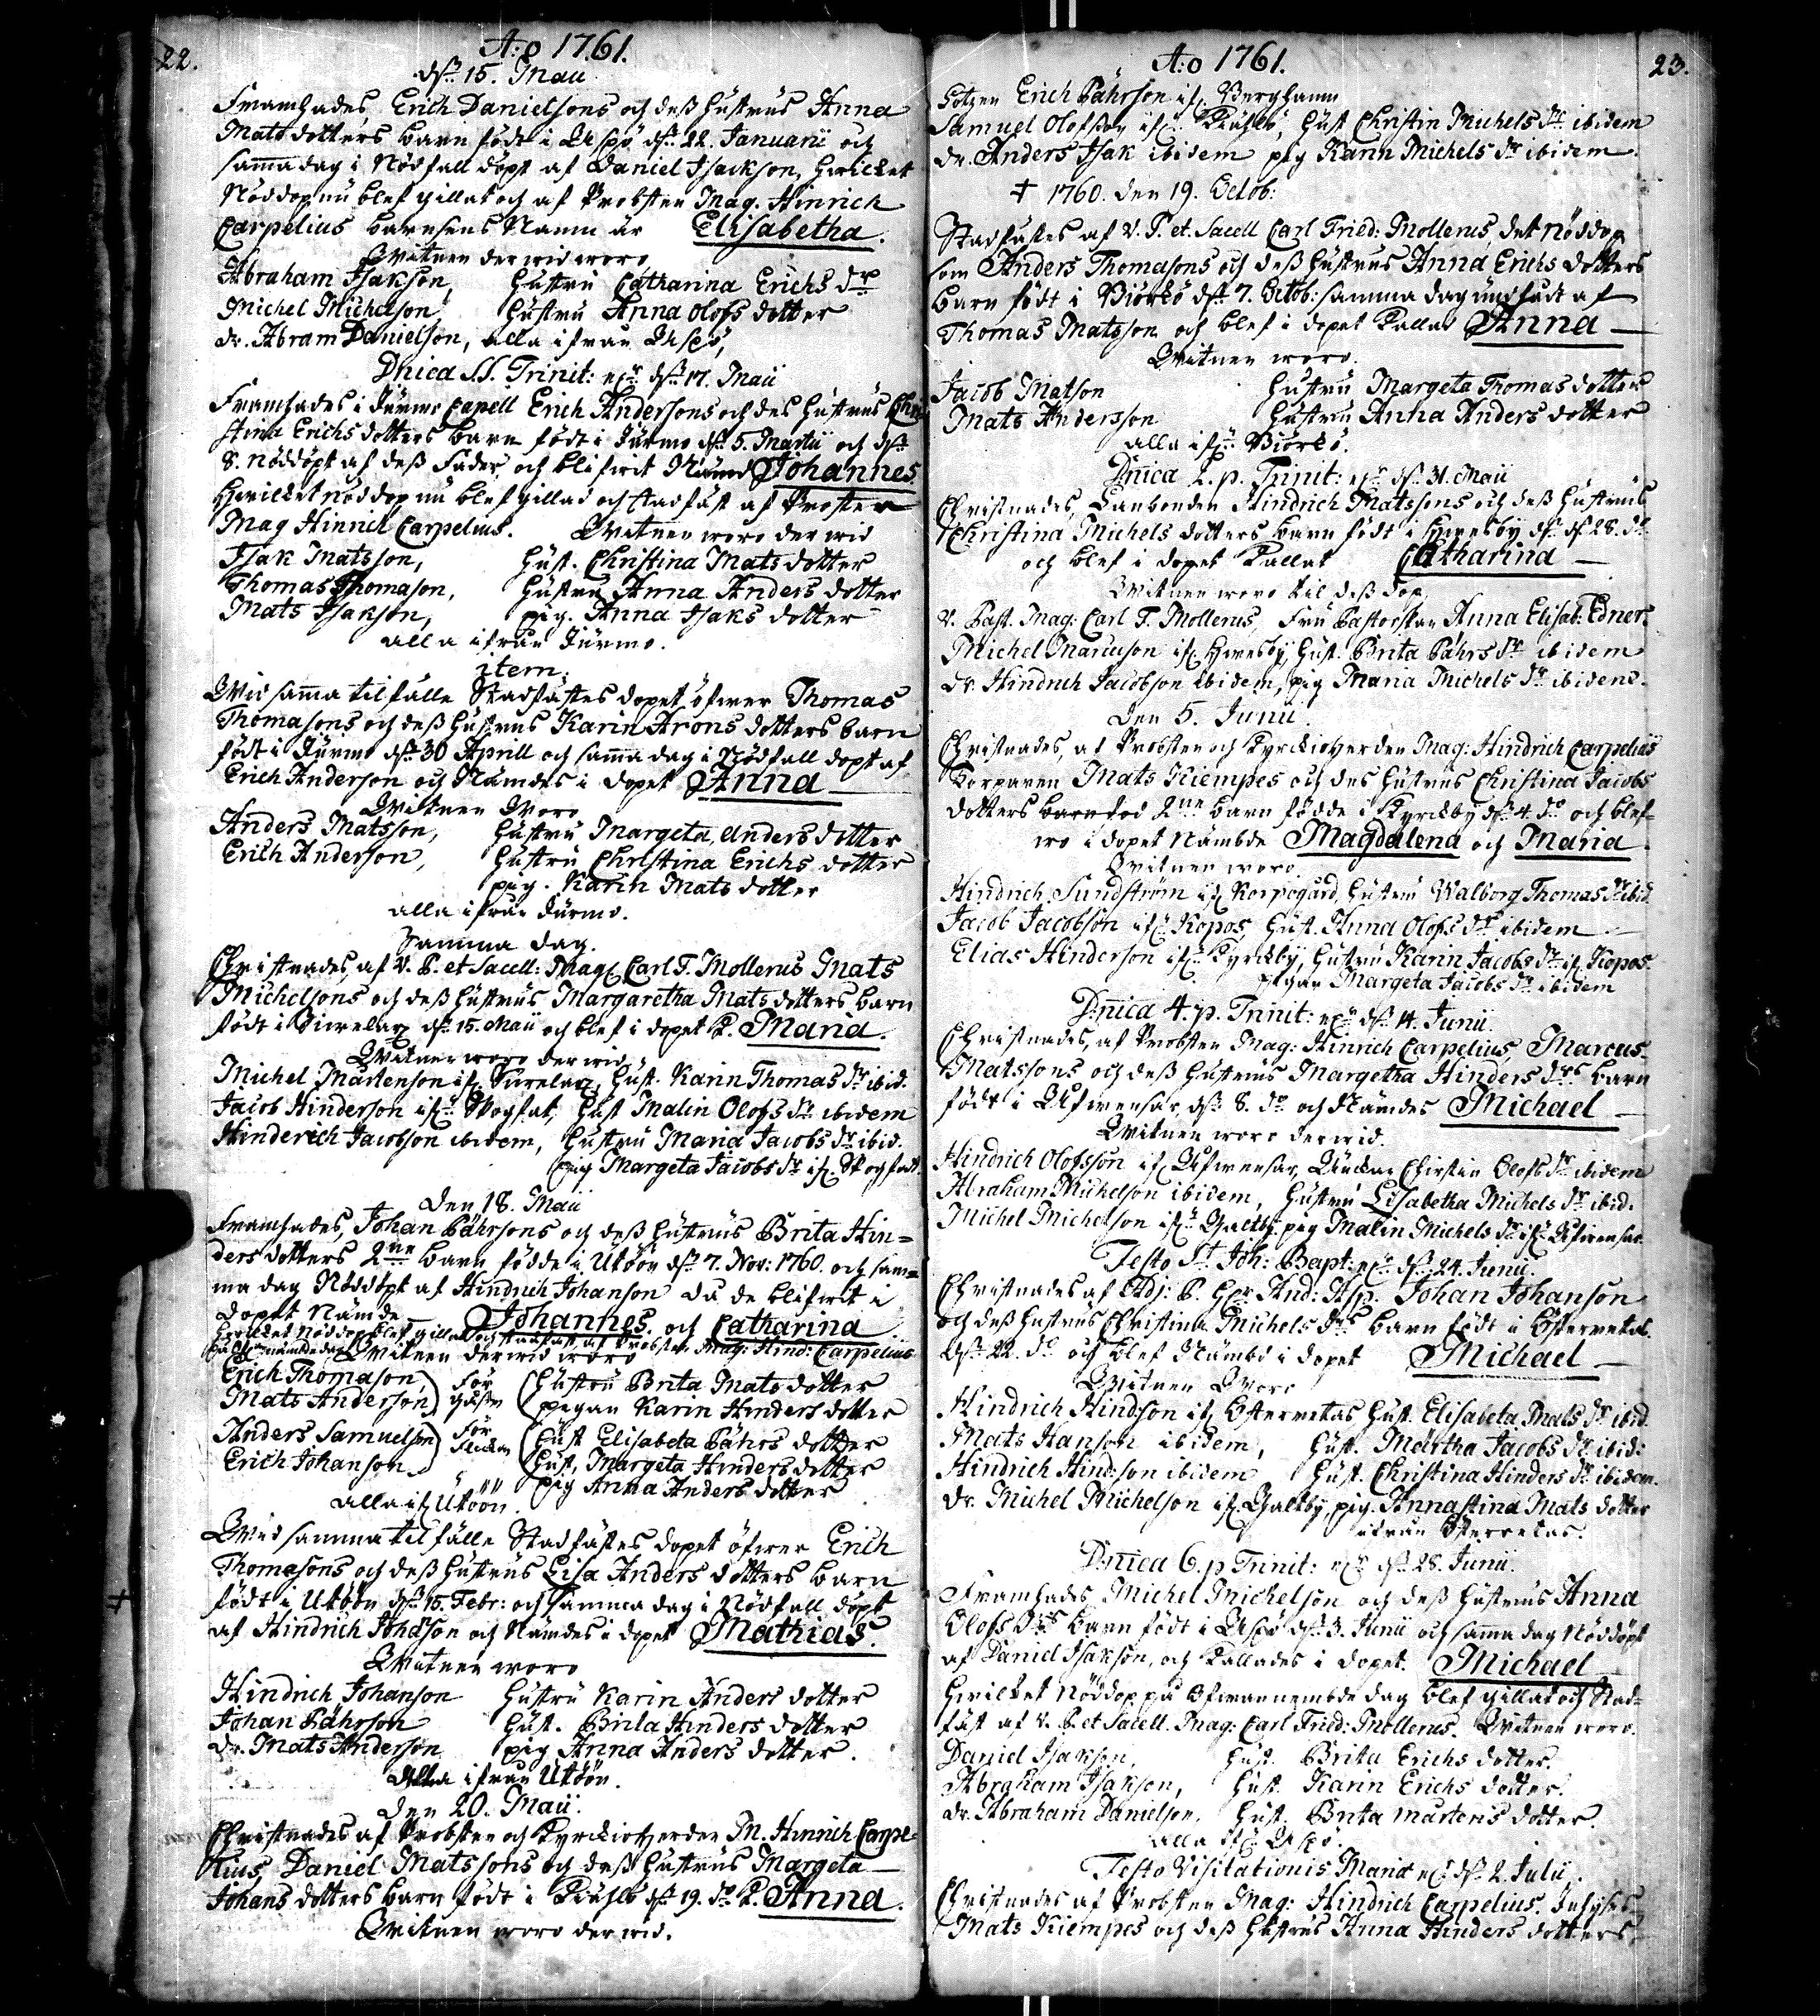 22.
A:o 1761.
dh 15. Maii
Framhades, Erich Danielsons och dess hustrus Anna
Mats dotters barn födt i Aspö dh 22. Januarii och
samma dag i Nödfall döpt af Daniel Isackson, hwilcket
Nöddop nu blef gillat och af Probsten Mag. Hinrich
Carpelius barnsens Namn är Elisabetha.
Witnen der wid woro
Abraham Isakson, Hustru Catharina Erichs dr
Michel Michelson, Hustru Anna Olofs dotter
dr. Abram Danielson, alla ifrån Aspö,
Dnica S.S. Trinit: dh 17. Maii
Framhades i Jurmo Capell Erich Andersons och des hustrus Chri
stina Erichs dotters barn födt i Jurmo dh 5. Martii och dh
8. nöddöpt af dess Fader och blifwit Nämd Johannes
hwilcket nöddop nu blef gillad och stadfäst af Prosten
Mag Hinrich Carpelius. Witnen woro der wid
Isak Matsson, Hust. Christina Mats dotter
Thomas Thomason, Hustru Anna Anders dotter
Mats Isakson, pig. Anna Isaks dotter
alla ifrån Jurmo.
item,
Wid samma tilfälle Stadfästes dopet öfwer Thomas
Thomasons och dess hustrus Karin Arons dotters barn
födt i Jurmo dh 30 Aprill och samma dag i Nödfall döpt af
Erich Anderson och Nämdes i dopet Anna
Witnen Woro
Anders Matsson, Hustru Margeta Anders dotter
Erich Anderson, Hustru Christina Erichs dotter
pig. Karin Mats dotter
alla ifrån Jurmo.
Samma dag.
Christnades, af V. P. et Sacell: Mag Carl F. Mollerus Mats
Michelsons och dess hustrus Margaretha Mats dotters barn
födt i dh 15. Maii och blef i dopet k. Maria.
Witnen woro der wid
Michel Mårtenson if Hust. Karin Thomas dr ibid.
Jacob Hinderson if Skogfat, Hust Malin Olofs dr ibidem
Hinderich Jacobson ibidem, Hustru Maria Jacobs dr ibid.
pig Margeta Jacobs dr if Skogfat.
Den 18. Maii
Framhades, Johan Påhrsons och dess hustrus Brita Hin=
ders dotters 2ne barn födde i Utöön dh 7. Nov: 1760. och sam=
ma dag Nöddöpt af Hindrich Johanson då de blifwit i
dopet Nämde Johannes. och Catharina
hwilcket nöddop blef gillat och stadfäst af Probsten Mag: Hind: Carpelius
Witnen der wid woro
Erich Thomason, för Hustru Brita Mats dotter
Mats Anderson, pigan Karin Hinders dotter
Anders Samuelson för Hust Elisabeta Påhrs dotter
Erich Johanson flickan Hust, Margeta Hinders dotter
pig Anna Anders dotter
alla if Utöön.
Wid samma tilfälle Stadfästes dopet öfwer Erich
Thomasons och dess hustrus Lisa Anders dotters barn
födt i Utöön dh 15. Febr: och samma dag i Nödfall döpt
af Hindrich Johanson och Nämdes i dopet Mathias.
Witnen woro
Hindrich Johanson Hustru Karin Anders dotter
Johan Påhrson Hust. Brita Hinders dotter
dr. Mats Anderson pig Anna Anders dotter.
Alla ifrån Utöön.
Den 20. Maii.
Christnades af Probsten och Kyrckioherden M. Hinrich Carpe=
lius, Daniel Matssons och dess hustrus Margeta
Johans dotters barn födt i dh 19. do k. Anna.
Witnen woro der wid.
A:o 1761.
23.
Erich Påhrson if Berghamn
Samuel Olofsson if Hust Christin Michels dr ibidem
dr. Anders Isak ibidem pig Karin Michels dr ibidem.
+ 1760. den 19. Octob:
Stadfästes af V. P. et. Sacell Carl Fried: Mollerus, det nöddop
som Anders Thomasons och dess hustrus Anna Erichs dotters
barn födt i Biörkö dh 7. Octob: samma dag undfådt af
Thomas Matsson och blef i dopet kallat Anna
Witnen woro.
Jacob Matson Hustru Margeta Thomas dotter
Mats Andersson Hustru Anna Anders dotter
alla if Biörkö.
Dnica 2. p. Trinit: dh 31. Maii
Christnades, Landbonden Hindrich Matssons och dess hustrus
Christina Michels dotters barn födt i dh 28. do
och blef i dopet kallat Catharina
Witnen woro til dess dop.
V. Past. Mag: Carl F. Mollerus, Fru Pastorskan Anna Elisab: Edner.
Michel Marcuson if Hust. Brita Påhrs dr ibidem
dr. Hindrich Jacobson ibidem, pig Maria Michels dr ibidem.
Den 5. Junii.
Christnades, af Probsten och Kyrckioherden Mag: Hindrich Carpelius
Torparen Mats Kiempes och des hustrus Christina Jacobs
dotters 2ne barn födde i Kyrckby dh 4. do och blef=
wo i dopet Nämbde Magdalena och Maria.
Witnen woro.
Hindrich Sundström if Korpogård, Hustru Walborg Thomas dr ibid.
Jacob Jacobson if Kopos, Hust. Anna Olofs dr ibidem
Elias Hinderson if Kyrckby, Hustru Karin Jacobs dr if Kopos.
pigan Margeta Jacobs dr ibidem
Dnica 4. p. Trinit: dh 14. Junii.
Christnades, af Probsten Mag: Hinrich Carpelius, Marcus
Matssons och dess hustrus Margetha Hinders drs barn
födt i dh 8. do och Nämdes Michael
Witnen woro der wid.
Hindrich Olofsson if Enckan Christin Olofs dr ibidem
Abraham Michelson ibidem, Hustru Lisabetha Michels dr ibid.
Michel Michelson if Galtby, pig Malin Michels dr if
Festo St Joh: Bapt: dh 24. Junii.
Christnades af Adj: P. And: Asp. Johan Johanson
och dess hustrus Christina Michels drs barn födt i Österretas
dh 22. do och blef Nämbd i dopet Michael
Witnen Woro
Hindrich Hindson if Österretas Hust. Elisabeta Mats dr ibid.
Mats Hanson ibidem, Hust. Märtha Jacobs dr ibid:
Hindrich Hindson ibidem Hust. Christina Hinders dr ibidem.
dr. Michel Michelson if Galtby, pig. Annastina Mats dotter
ifrån Österretas.
Dnica 6. p Trinit: dh 28. Junii.
Framhades Michel Michelson och dess hustrus Anna
Olofs drs barn födt i Aspö dh 3. Junii och samma dag Nöddöpt
af Daniel Isakson, och kallades i dopet. Michael
hwilcket nöddop på ofwannembde dag blef gillat och Stad=
fäst af V. P. et Sacell. Mag: Carl Fried: Mollerus. Witnen woro.
Daniel Isakson, Hust. Brita Erichs dotter.
Abraham Isakson, Hust. Karin Erichs dotter.
dr. Abraham Danielson, Hust. Brita Mårtens dotter.
alla if Aspö.
Festo Visitationis Mariæ dh 2. Julii.
Christnades af Probsten Mag: Hindrich Carpelius.
Mats Kiempes och dess hustrus Anna Hinders dotters,